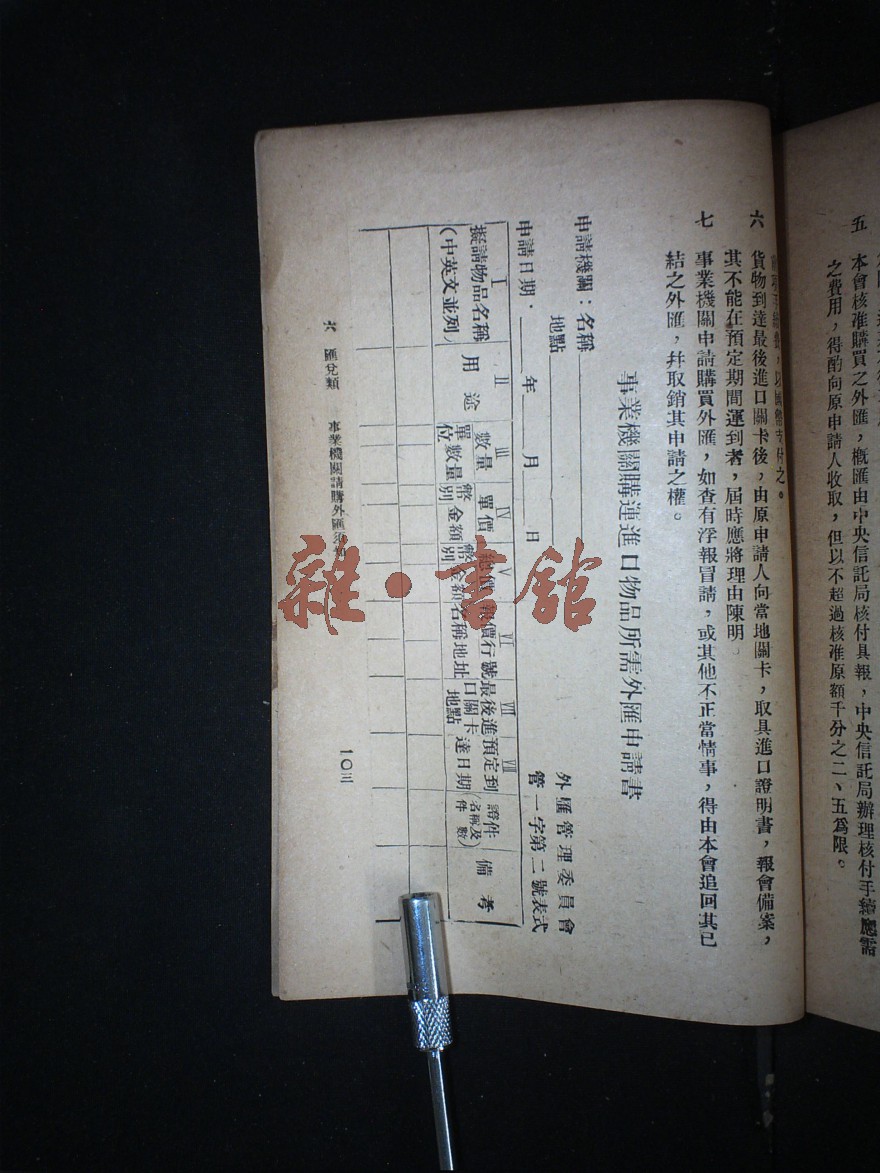 五　本會核准購買之外匯，概匯由中央信託局核付具報，中央信託局辦理核付手續應需
之費用，得酌向原申請人收取，但以不超過核准原額千分之二、五爲限。
六　貨物到達最後進口關卡後，由原申請人向當地關卡，取具進口證明書，報會備案，
其不能在預定期間運到者，屆時應將理由陳明
七　事業機關申請購買外匯，如查有浮報冒請，或其他不正當情事，得由本會追回其已
結之外匯，幷取銷其申請之權。
事業機關購運進口物品所需外匯申請書
外匯管理委員會
管一字第二號表式
申請機關：名稱
地點
申請日期：　年　月　日
I 擬請物品名稱（中英文並列）
II 用途
III 數量 單位 數量
IV 單價 幣別 金額
V 總價 幣別 金額
VI 報價行號 名稱 地址
VII 最後進口關卡地點
VIII 預定到達日期
證件（名稱及件數）
備考
六　匯兌類　事業機關請購外匯須知
一〇三
雜·書館